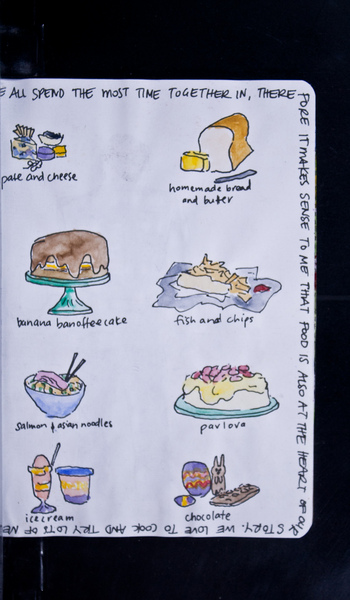 E ALL SPEND THE MOST TIME TOGETHER IN, THERE-
FORE IT MAKES SENSE TO ME THAT FOOD IS ALSO AT THE HEART OF OUR
STORY. WE LOVE TO COOK AND TRY LOTS OF NE
pate and cheese
homemade bread
and butter
banana banoffee cake
fish and chips
salmon & asian noodles
pavlova
icecream
chocolate